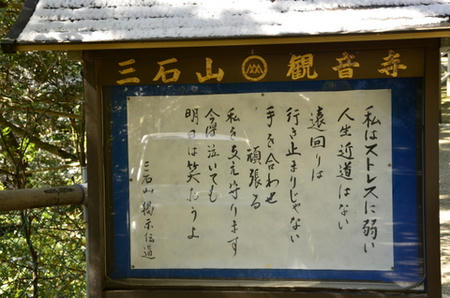 三石山 観音寺
私はストレスに弱い
人生近道はない
遠回りは
行き止まりじゃない
手を合わせ
頑張る
私を支え守ります
今浮泣いても
明日は笑おうよ
三石山 掲示伝道